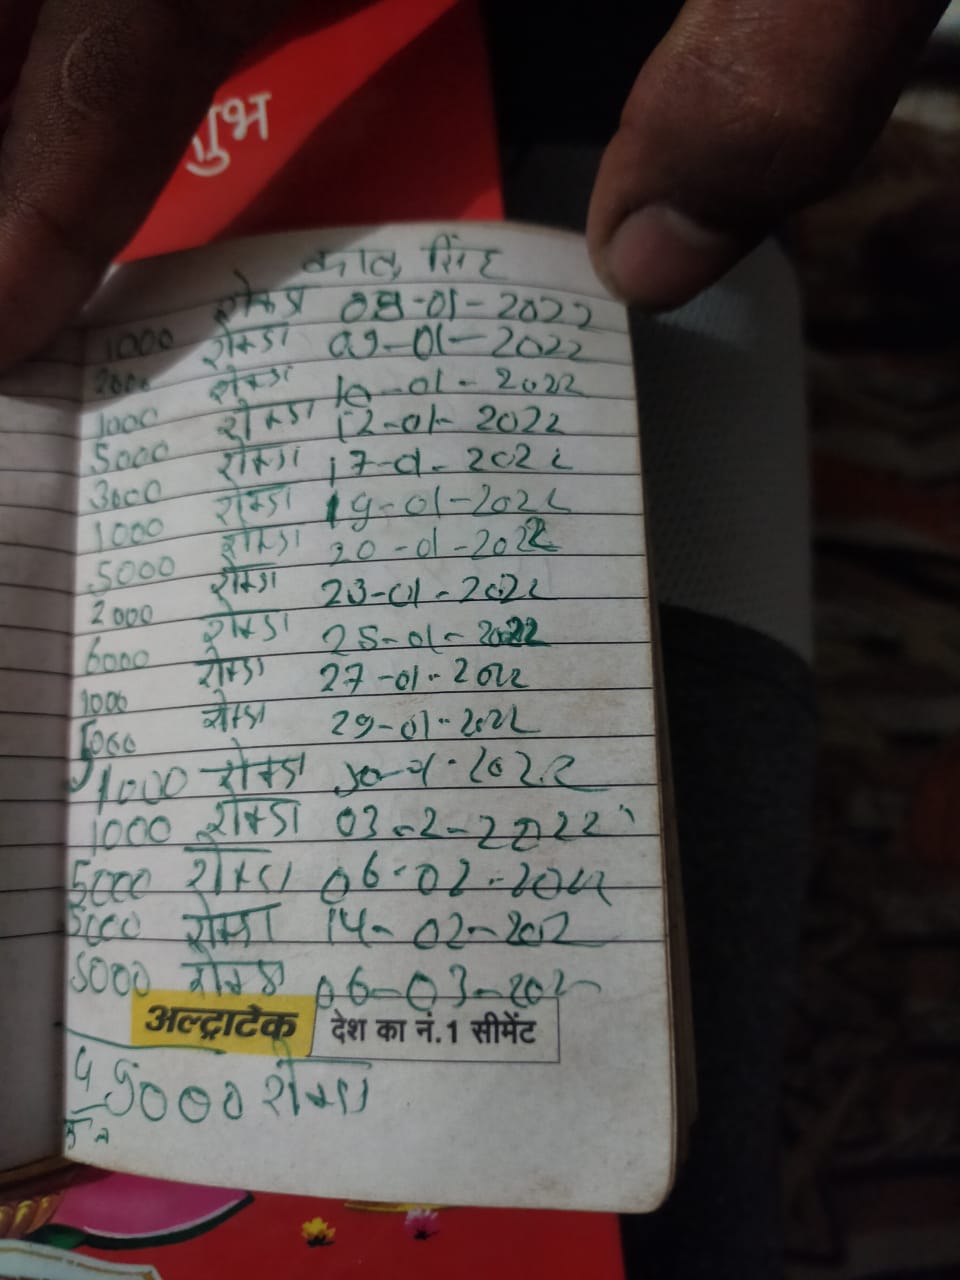 शुभ
कालु सिंह
1000 रोकडा 08-01-2022
2000 रोकडा 09-01-2022
1000 रोकडा 10-01-2022
5000 रोकडा 12-01-2022
3000 रोकडा 17-01-2022
1000 रोकडा 19-01-2022
5000 रोकडा 20-01-2022
2000 रोकडा 23-01-2022
6000 रोकडा 25-01-2022
1000 रोकडा 27-01-2022
5000 रोकडा 29-01-2022
1000 रोकडा 30-1-2022
1000 रोकडा 03-2-2022
5000 रोकडा 06-02-2022
5000 रोकडा 14-02-202
5000 रोकडा 06-03-202
अल्ट्राटेक देश का नं.1 सीमेंट
रोकडा